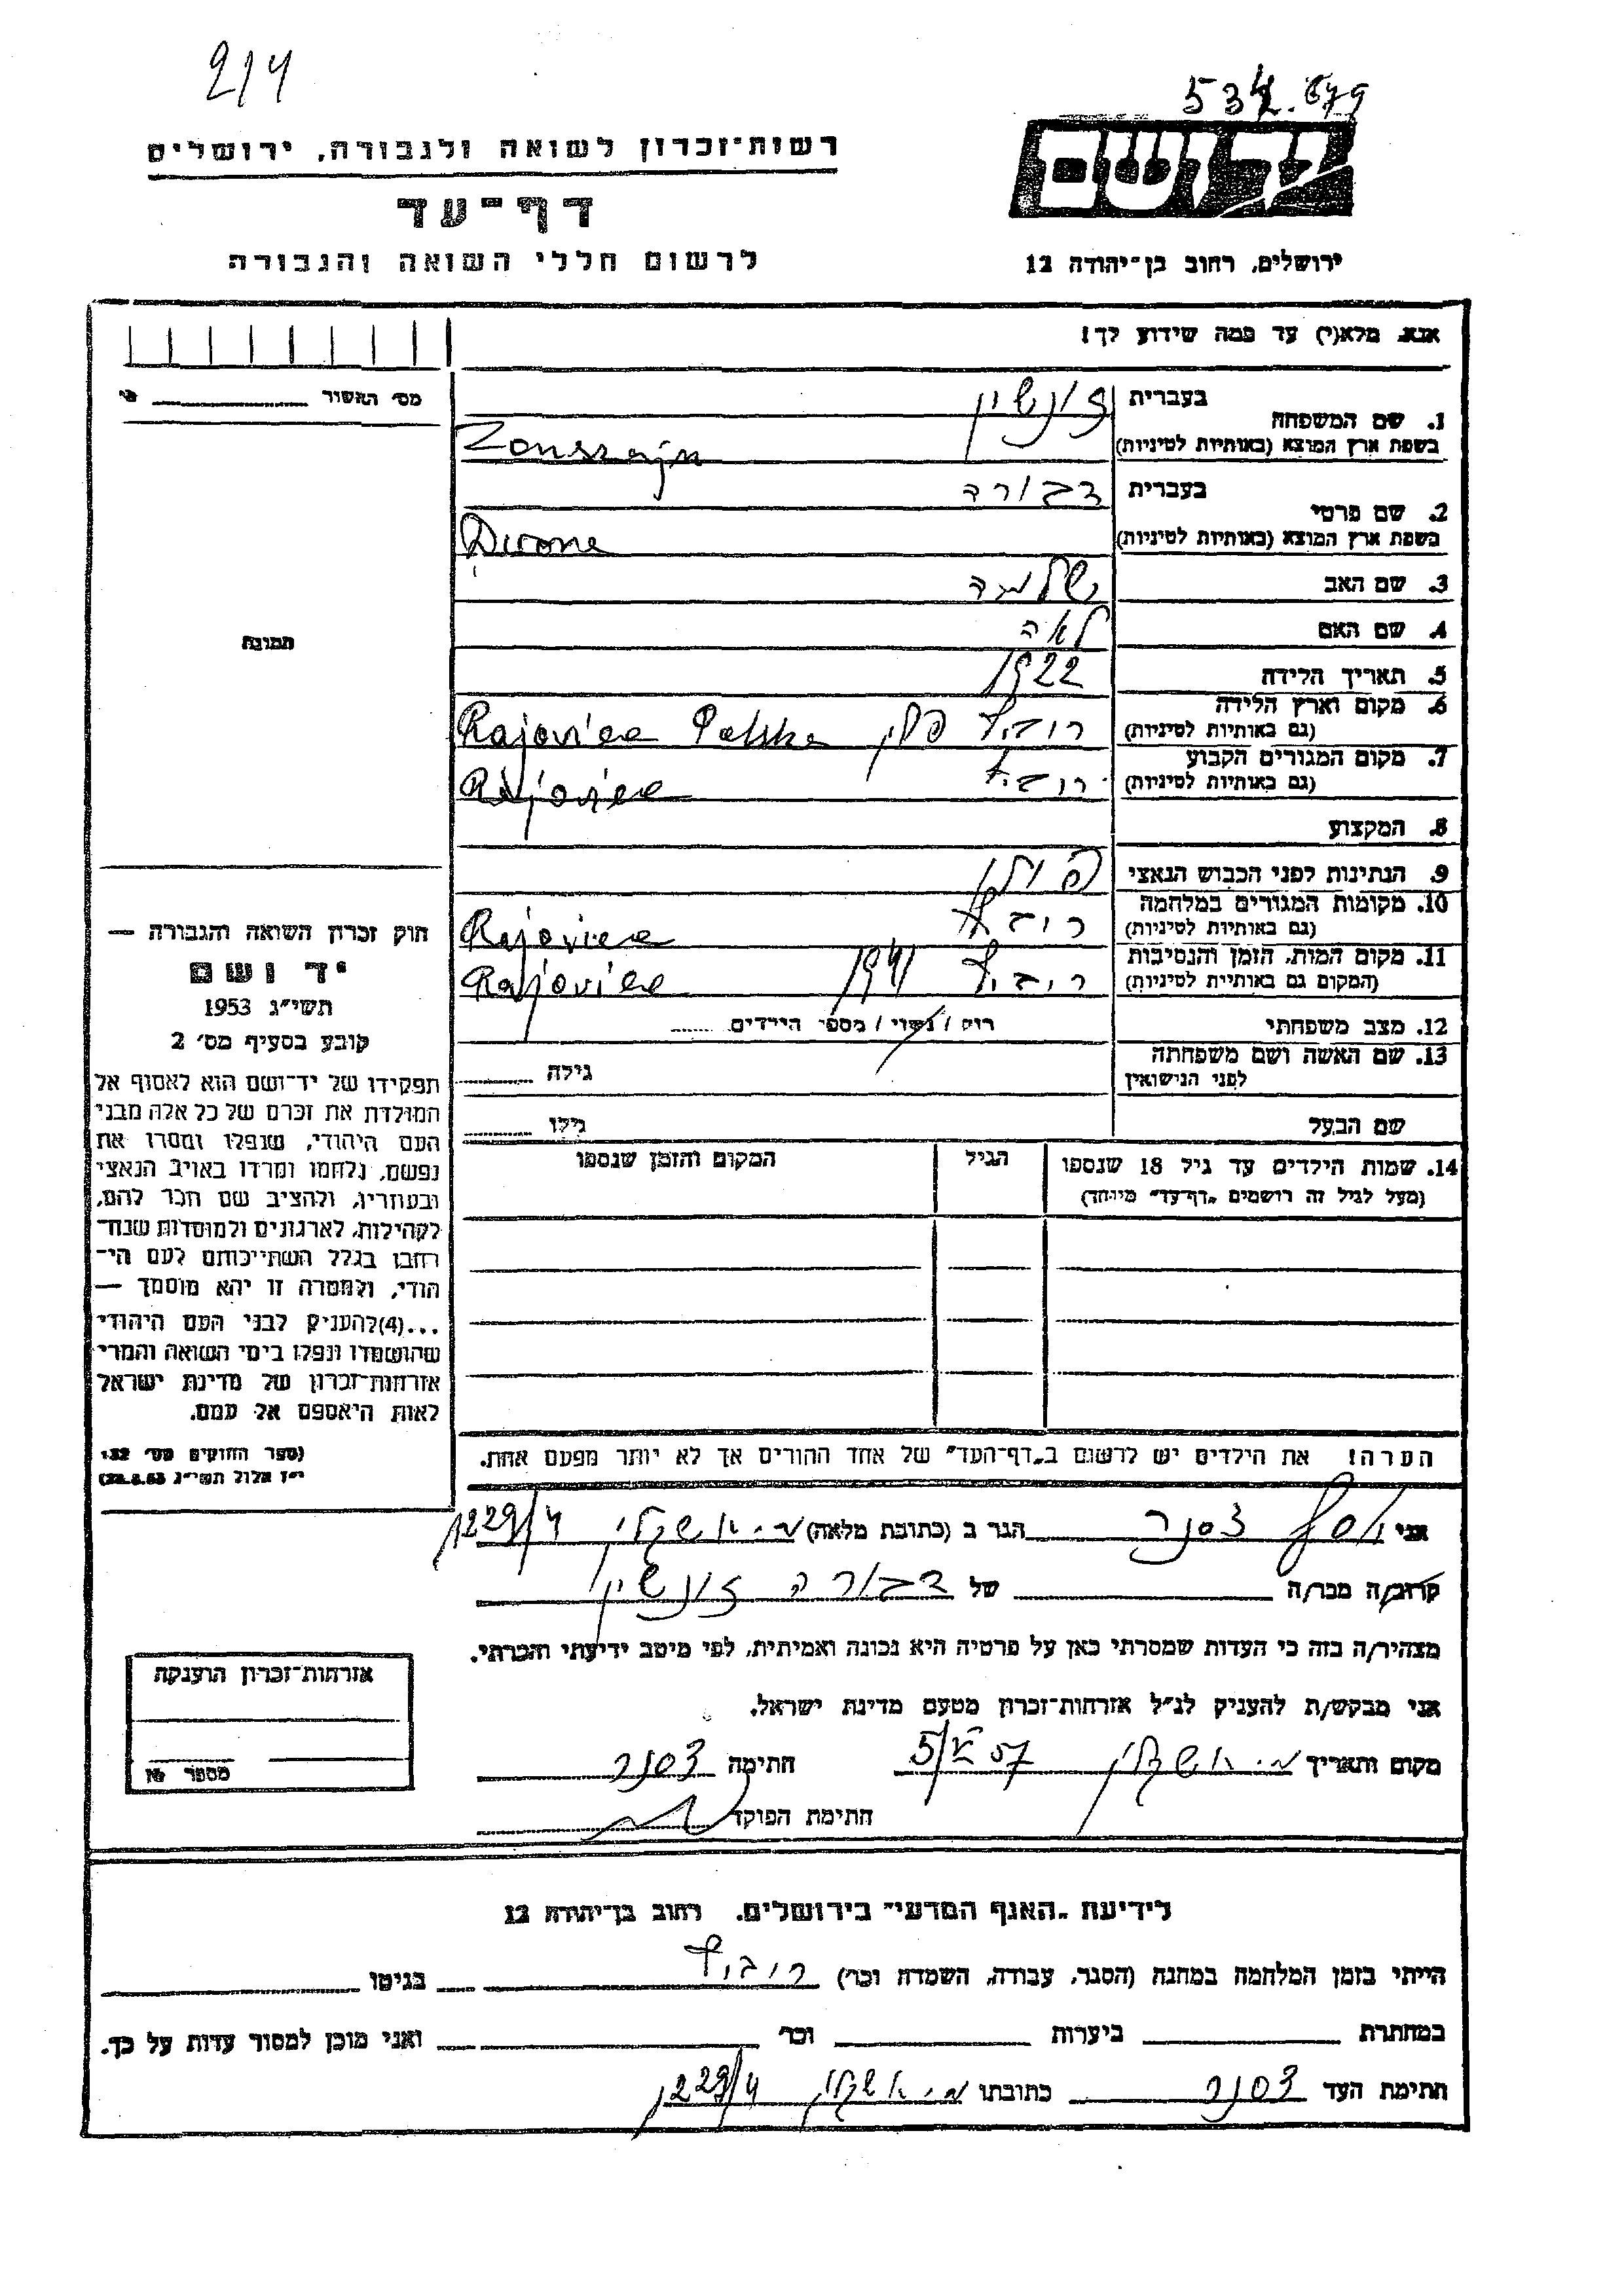 214
534.679
רשות־זכרון לשואה ולגבורה, ירושלים
יד ושם
דף־עד
לרשום חללי השואה והגבורה
ירושלים, רחוב בן־יהודה 12
אנא, מלא(י) עד כמה שידוע לך!
מס׳ האשור
1. שם המשפחה
בעברית זונשין
בשפת ארץ המוצא (באותיות לטיניות) Zonszajn
2. שם פרטי
בעברית דבורה
בשפת ארץ המוצא (באותיות לטיניות)
3. שם האב שלמה
4. שם האם לאה
5. תאריך הלידה 1922
6. מקום וארץ הלידה
(גם באותיות לטיניות) פולין Rajoviec Polska
7. מקום המגורים הקבוע
(גם באותיות לטיניות) Rajoviec
8. המקצוע
9. הנתינות לפני הכבוש הנאצי פולין
10. מקומות המגורים במלחמה
(גם באותיות לטיניות) Rajoviec
11. מקום המות, הזמן והנסיבות
(המקום גם באותיות לטיניות) 1941 Rajoviec
12. מצב משפחתי רוק / נשוי / מספר הילדים
13. שם האשה ושם משפחתה
לפני הנישואין גילה
שם הבעל גילו
14. שמות הילדים עד גיל 18 שנספו הגיל המקום והזמן שנספו
(מעל לגיל זה רושמים „דף־עד״ מיוחד)
הערה! את הילדים יש לרשום ב„דף־העד״ של אחד ההורים אך לא יותר מפעם אחת.
תמונה
חוק זכרון השואה והגבורה —
יד ושם
תשי״ג 1953
קובע בסעיף מס׳ 2
תפקידו של יד־ושם הוא לאסוף אל
המולדת את זכרם של כל אלה מבני
העם היהודי, שנפלו ומסרו את
נפשם, נלחמו ומרדו באויב הנאצי
ובעוזריו, ולהציב שם וזכר להם,
לקהילות, לארגונים ולמוסדות שנח־
רבו בגלל השתייכותם לעם הי־
הודי, ולמטרה זו יהא מוסמך —
...(4) להעניק לבני העם היהודי
שהושמדו ונפלו בימי השואה והמרי
אזרחות־זכרון של מדינת ישראל
לאות היאספם אל עמם.
(ספר החוקים מס׳ 132
י״ז אלול תשי״ג 28.8.53)
אני יוסף צסנר הגר ב (כתובת מלאה) מ. אשקלון 1229/4
קרוב/ה מכר/ה של דבורה זונשין
מצהיר/ה בזה כי העדות שמסרתי כאן על פרטיה היא נכונה ואמיתית, לפי מיטב ידיעתי והכרתי.
אני מבקש/ת להעניק לנ״ל אזרחות־זכרון מטעם מדינת ישראל.
מקום ותאריך מ. אשקלון 57 חתימה צסנר
חתימת הפוקד
אזרחות־זכרון הוענקה
מספר №
לידיעת „האגף המדעי״ בירושלים. רחוב בן־יהודה 12
הייתי בזמן המלחמה במחנה (הסגר, עבודה, השמדה וכר׳) בגיטו
במחתרת ביערות וכר׳ ואני מוכן למסור עדות על כך.
חתימת העד צסנר כתובתו מ. אשקלון 1229/4